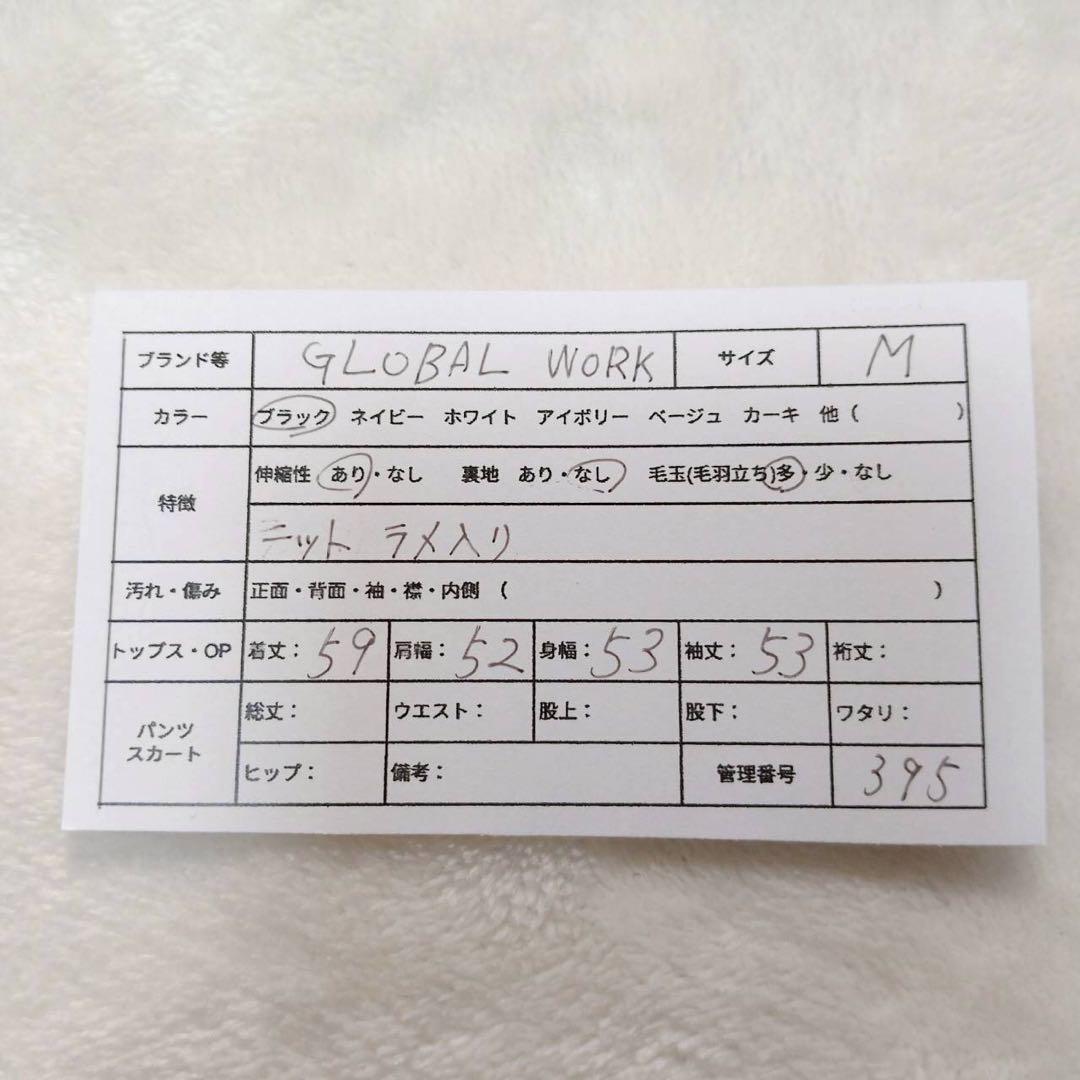 ブランド等 GLOBAL WORK サイズ M
カラー ブラック ネイビー ホワイト アイボリー ベージュ カーキ 他( )
特徴 伸縮性 あり・なし 裏地 あり・なし 毛玉(毛羽立ち)多・少・なし
ニット ラメ入り
汚れ・傷み 正面・背面・袖・襟・内側 ( )
トップス・OP 着丈：59 肩幅：52 身幅：53 袖丈：53 裄丈：
パンツ スカート 総丈： ウエスト： 股上： 股下： ワタリ：
ヒップ： 備考： 管理番号 395